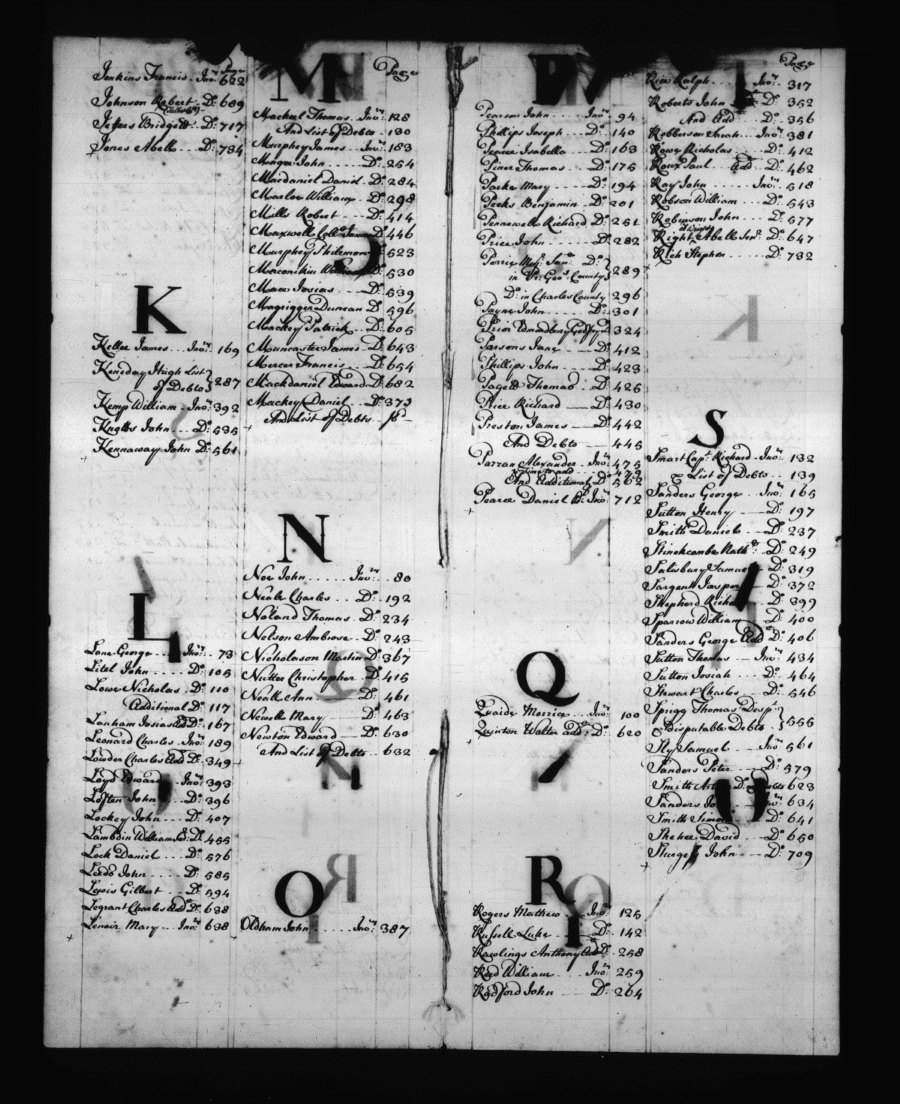 Page
Jenkins Francis - Inv.ry 622
Johnson Robert - D.o 689
Jeffers Bridgett - D.o 717
Jones Abell - D.o 734
K
Keller James - Inv.ry 169
Keneday Hugh List
of Debts 287
Kemp William - Inv.ry 392
Knotts John - D.o 535
Kennaway John D.o 561
L
Lane George - Inv.ry 73
Litel John - D.o 105
Lowe Nicholas - D.o 110
Additional D.o 117
Lanham Josias add D.o 167
Leonard Charles Inv.ry 189
Lowder Charles add D.o 349
Loyd Edward - Inv.ry 393
Loften John - D.o 396
Lockey John - D.o 407
Lambdin William D.o 455
Lock Daniel - D.o 576
Leeds John - D.o 585
Lewis Gilbert - D.o 594
Legrant Charles add D.o 638
Lenoir Mary - Inv.ry 638
M
Page
Mackel Thomas - Inv.ry 128
And List of Debts - 130
Murphey James - Inv.ry 153
Magra John - D.o 254
Macdaniel Daniel - D.o 284
Marlow William - D.o 298
Mills Robert - D.o 414
Maxwell Coll.o James D.o 446
Murphey Philemon D.o 523
Maconikin William D.o 530
Mace Josias - D.o 539
Magrigger Duncan D.o 596
Mackey Patrick - D.o 605
Muncaster James - D.o 643
Mercer Francis - D.o 654
Mackdaniel Edward D.o 682
Mackey Daniel - D.o 373
And List of Debts
N
Noe John - Inv.ry 80
Neale Charles - D.o 192
Noland Thomas - D.o 234
Nelson Ambrose - D.o 243
Nicholason Martin D.o 367
Nutter Christopher D.o 415
Neall Ann - D.o 461
Newell Mary - D.o 463
Newton Edward - D.o 630
And List of Debts - 632
O
Oldham John - Inv.ry 387
P
Pearson John - Inv.ry 94
Phillips Joseph - D.o 140
Pearce Isabella - D.o 163
Piner Thomas - D.o 175
Parke Mary - D.o 194
Peeks Benjamin - D.o 201
Pennewell Richard D.o 251
Price John - D.o 282
Perrie Sam.l D.o
in Pr: Geo.s County 289
D.o in Charles County 296
Payne John - D.o 301
D.o 324
Parsons Jane - D.o 412
Phillips John - D.o 423
Pagett Thomas - D.o 426
Price Richard - D.o 430
Preston James - D.o 442
And Debts - 445
Parran Alexander - Inv.ry 475
And Additional D.o 562
Pearce Daniel Inv.ry 712
Q
Quaide Morrice - Inv.ry 100
Quinton Walter add D.o 620
R
Rogers Matthew - Inv.ry 125
Russell Luke - D.o 142
Rawlings Anthony add D.o 258
Reed William - Inv.ry 259
Radford John - D.o 264
Page
Rice Ralph - Inv.ry 317
Roberts John - D.o 352
And add D.o 356
Robberson Sarah - Inv.ry 381
Rowe Nicholas - D.o 412
Rowe Paul add D.o 462
Roy John - Inv.ry 518
Robson William - D.o 543
Robinson John - D.o 577
Right Abell Sen.r D.o 647
Rich Stephen - D.o 732
S
Smart Cap.t Richard - Inv.ry 132
& List of Debts - 139
Sanders George - Inv.ry 165
Sutton Henry - D.o 197
Smith Daniel - D.o 237
Stinchcombe Nath.l D.o 249
Salisbury Samuel D.o 319
Sargent Jasper D.o 372
Shepherd Richard D.o 399
Sparrow William D.o 400
Sanders George add D.o 406
Sutton Thomas - Inv.ry 434
Sutton Josiah - D.o 464
Stewart Charles - D.o 546
Sprigg Thomas Desp.t
& Disputable Debts 555
Sly Samuel - Inv.ry 561
Sanders Peter - D.o 579
Smith D.o Debts 623
Sanders Inv.ry 634
Smith Simon D.o 641
Shehee David - D.o 650
Sturgess John - D.o 709